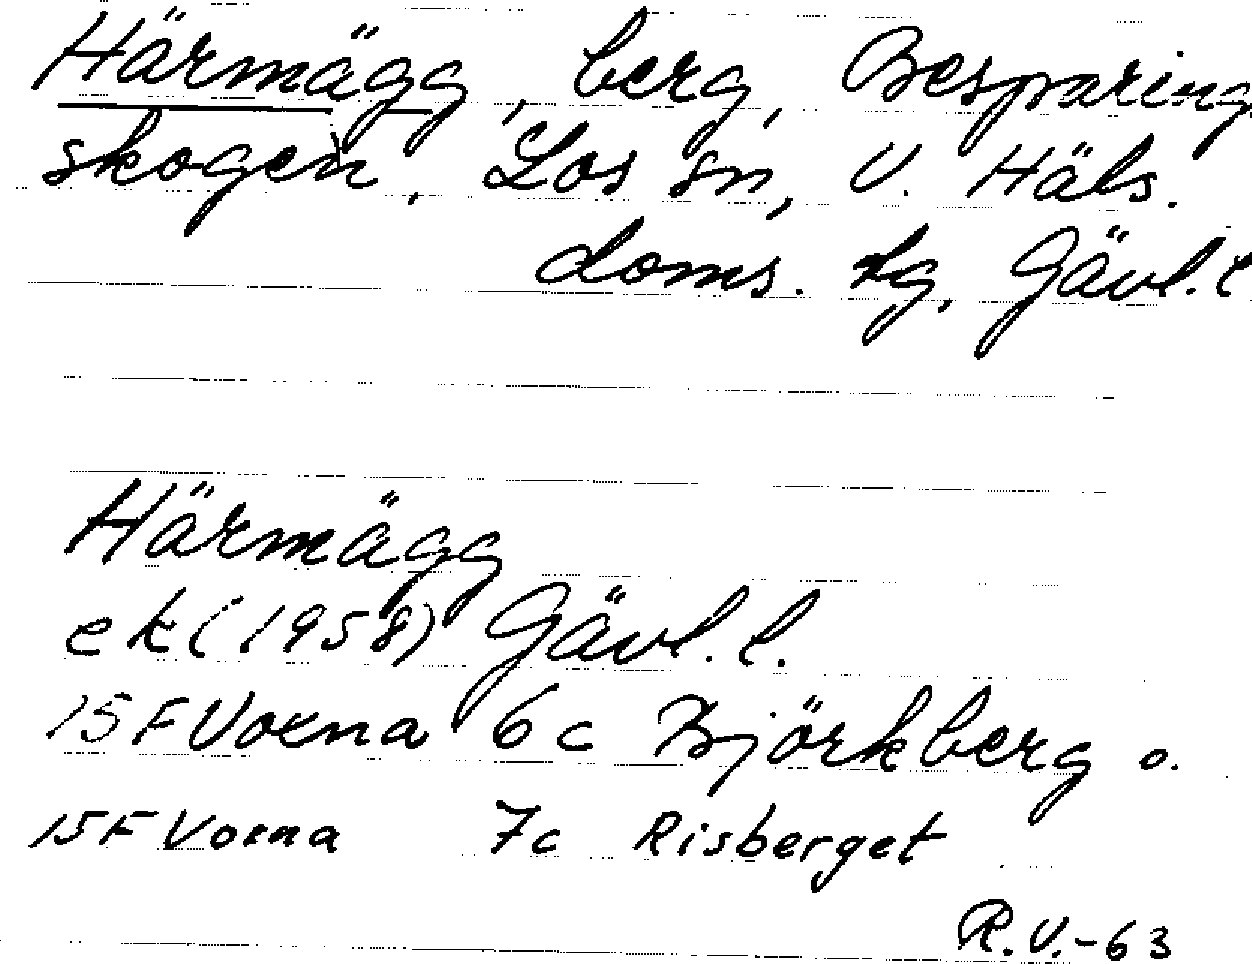 Härmägg, berg, Besparing
skogen, Los sn, V. Häls.
doms. tg, Gävl. l
Härmägg
ek (1958) Gävl. l.
15 F Voxna 6 c Björkberg o.
15 F Voxna 7c Risberget
R.V.-63